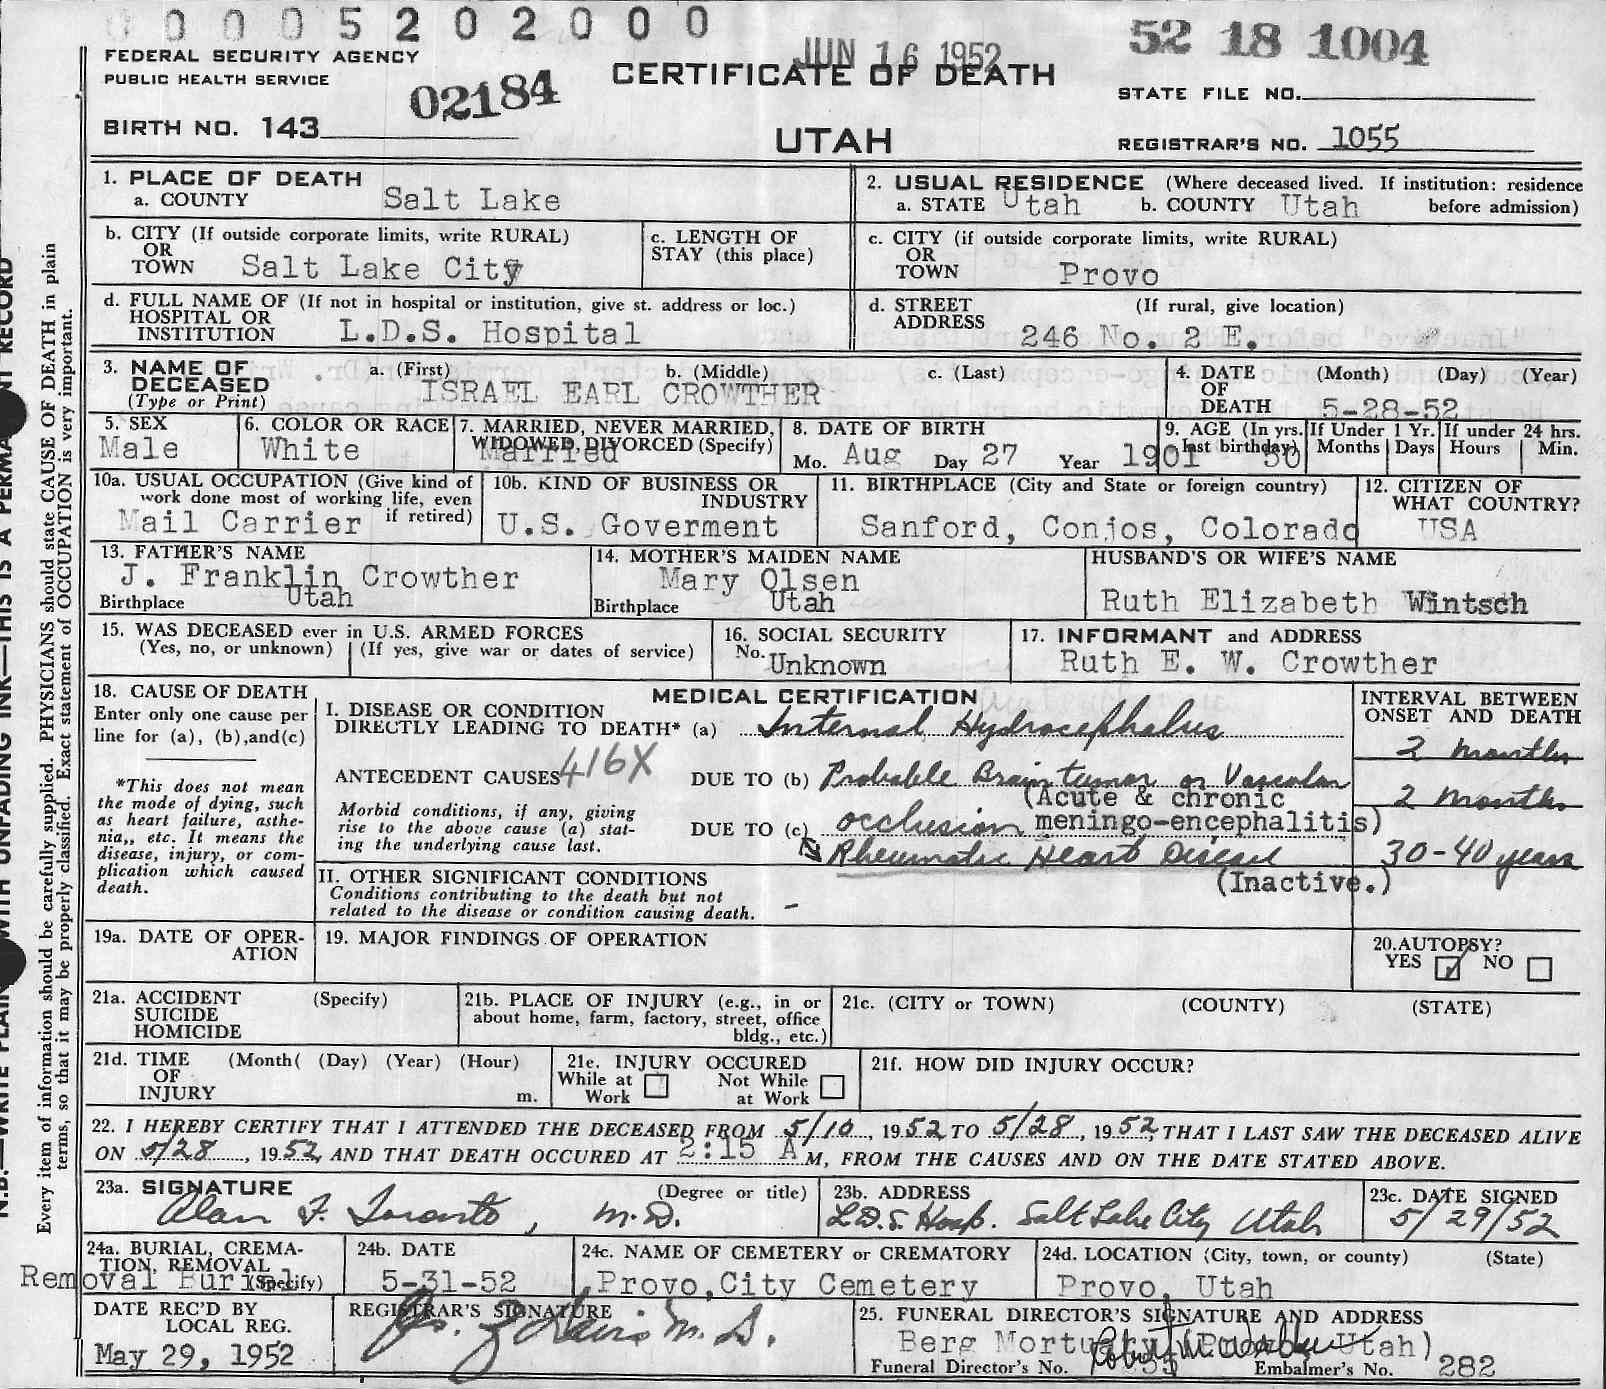 0 0 0 0 5 2 0 2 0 0 0
JUN 16 1952
52 18 1004
FEDERAL SECURITY AGENCY
PUBLIC HEALTH SERVICE
02184
CERTIFICATE OF DEATH
STATE FILE NO.
BIRTH NO. 143
UTAH
REGISTRAR'S NO. 1055
1. PLACE OF DEATH
a. COUNTY Salt Lake
2. USUAL RESIDENCE (Where deceased lived. If institution: residence before admission)
a. STATE Utah b. COUNTY Utah
b. CITY (If outside corporate limits, write RURAL)
OR
TOWN Salt Lake City
c. LENGTH OF
STAY (this place)
c. CITY (if outside corporate limits, write RURAL)
OR
TOWN Provo
d. FULL NAME OF (If not in hospital or institution, give st. address or loc.)
HOSPITAL OR
INSTITUTION L.D.S. Hospital
d. STREET (If rural, give location)
ADDRESS 246 No. 2 E.
3. NAME OF a. (First) b. (Middle) c. (Last)
DECEASED
(Type or Print) ISRAEL EARL CROWTHER
4. DATE (Month) (Day) (Year)
OF
DEATH 5-28-52
5. SEX
Male
6. COLOR OR RACE
White
7. MARRIED, NEVER MARRIED,
WIDOWED, DIVORCED (Specify)
Married
8. DATE OF BIRTH
Mo. Aug Day 27 Year 1901
9. AGE (In yrs.
last birthday) 50
If Under 1 Yr.
Months Days
If under 24 hrs.
Hours Min.
10a. USUAL OCCUPATION (Give kind of
work done most of working life, even
if retired)
Mail Carrier
10b. KIND OF BUSINESS OR
INDUSTRY
U.S. Goverment
11. BIRTHPLACE (City and State or foreign country)
Sanford, Conjos, Colorado
12. CITIZEN OF
WHAT COUNTRY?
USA
13. FATHER'S NAME
J. Franklin Crowther
Birthplace Utah
14. MOTHER'S MAIDEN NAME
Mary Olsen
Birthplace Utah
HUSBAND'S OR WIFE'S NAME
Ruth Elizabeth Wintsch
15. WAS DECEASED ever in U.S. ARMED FORCES
(Yes, no, or unknown) (If yes, give war or dates of service)
16. SOCIAL SECURITY
No. Unknown
17. INFORMANT and ADDRESS
Ruth E. W. Crowther
18. CAUSE OF DEATH
Enter only one cause per
line for (a), (b),and(c)
*This does not mean
the mode of dying, such
as heart failure, asthe-
nia,, etc. It means the
disease, injury, or com-
plication which caused
death.
MEDICAL CERTIFICATION
I. DISEASE OR CONDITION
DIRECTLY LEADING TO DEATH* (a) Internal Hydrocephalus
ANTECEDENT CAUSES 416X
DUE TO (b) Probable Brain tumor or Vascular
(Acute & chronic
Morbid conditions, if any, giving
rise to the above cause (a) stat-
ing the underlying cause last.
DUE TO (c) occlusion meningo-encephalitis)
Rheumatic Heart Disease
(Inactive.)
II. OTHER SIGNIFICANT CONDITIONS
Conditions contributing to the death but not
related to the disease or condition causing death. -
INTERVAL BETWEEN
ONSET AND DEATH
2 months
2 months
30-40 years
19a. DATE OF OPER-
ATION
19. MAJOR FINDINGS OF OPERATION
20.AUTOPSY?
YES NO
21a. ACCIDENT (Specify)
SUICIDE
HOMICIDE
21b. PLACE OF INJURY (e.g., in or
about home, farm, factory, street, office
bldg., etc.)
21c. (CITY or TOWN) (COUNTY) (STATE)
21d. TIME (Month( (Day) (Year) (Hour)
OF
INJURY m.
21e. INJURY OCCURED
While at Work Not While at Work
21f. HOW DID INJURY OCCUR?
22. I HEREBY CERTIFY THAT I ATTENDED THE DECEASED FROM 5/10, 1952 TO 5/28, 1952, THAT I LAST SAW THE DECEASED ALIVE
ON 5/28, 1952, AND THAT DEATH OCCURED AT 2:15 A M, FROM THE CAUSES AND ON THE DATE STATED ABOVE.
23a. SIGNATURE (Degree or title)
Alan F. Toronto, M.D.
23b. ADDRESS
L.D.S. Hosp. Salt Lake City Utah
23c. DATE SIGNED
5/29/52
24a. BURIAL, CREMA-
TION, REMOVAL
(Specify)
Removal Burial
24b. DATE
5-31-52
24c. NAME OF CEMETERY or CREMATORY
Provo,City Cemetery
24d. LOCATION (City, town, or county) (State)
Provo, Utah
DATE REC'D BY
LOCAL REG.
May 29, 1952
REGISTRAR'S SIGNATURE
Davis M.D.
25. FUNERAL DIRECTOR'S SIGNATURE AND ADDRESS
Berg Mortuary (Provo, Utah)
Funeral Director's No. Embalmer's No. 282
N.B.—WRITE PLAINLY WITH UNFADING INK—THIS IS A PERMANENT RECORD
Every item of information should be carefully supplied. PHYSICIANS should state CAUSE OF DEATH in plain
terms, so that it may be properly classified. Exact statement of OCCUPATION is very important.